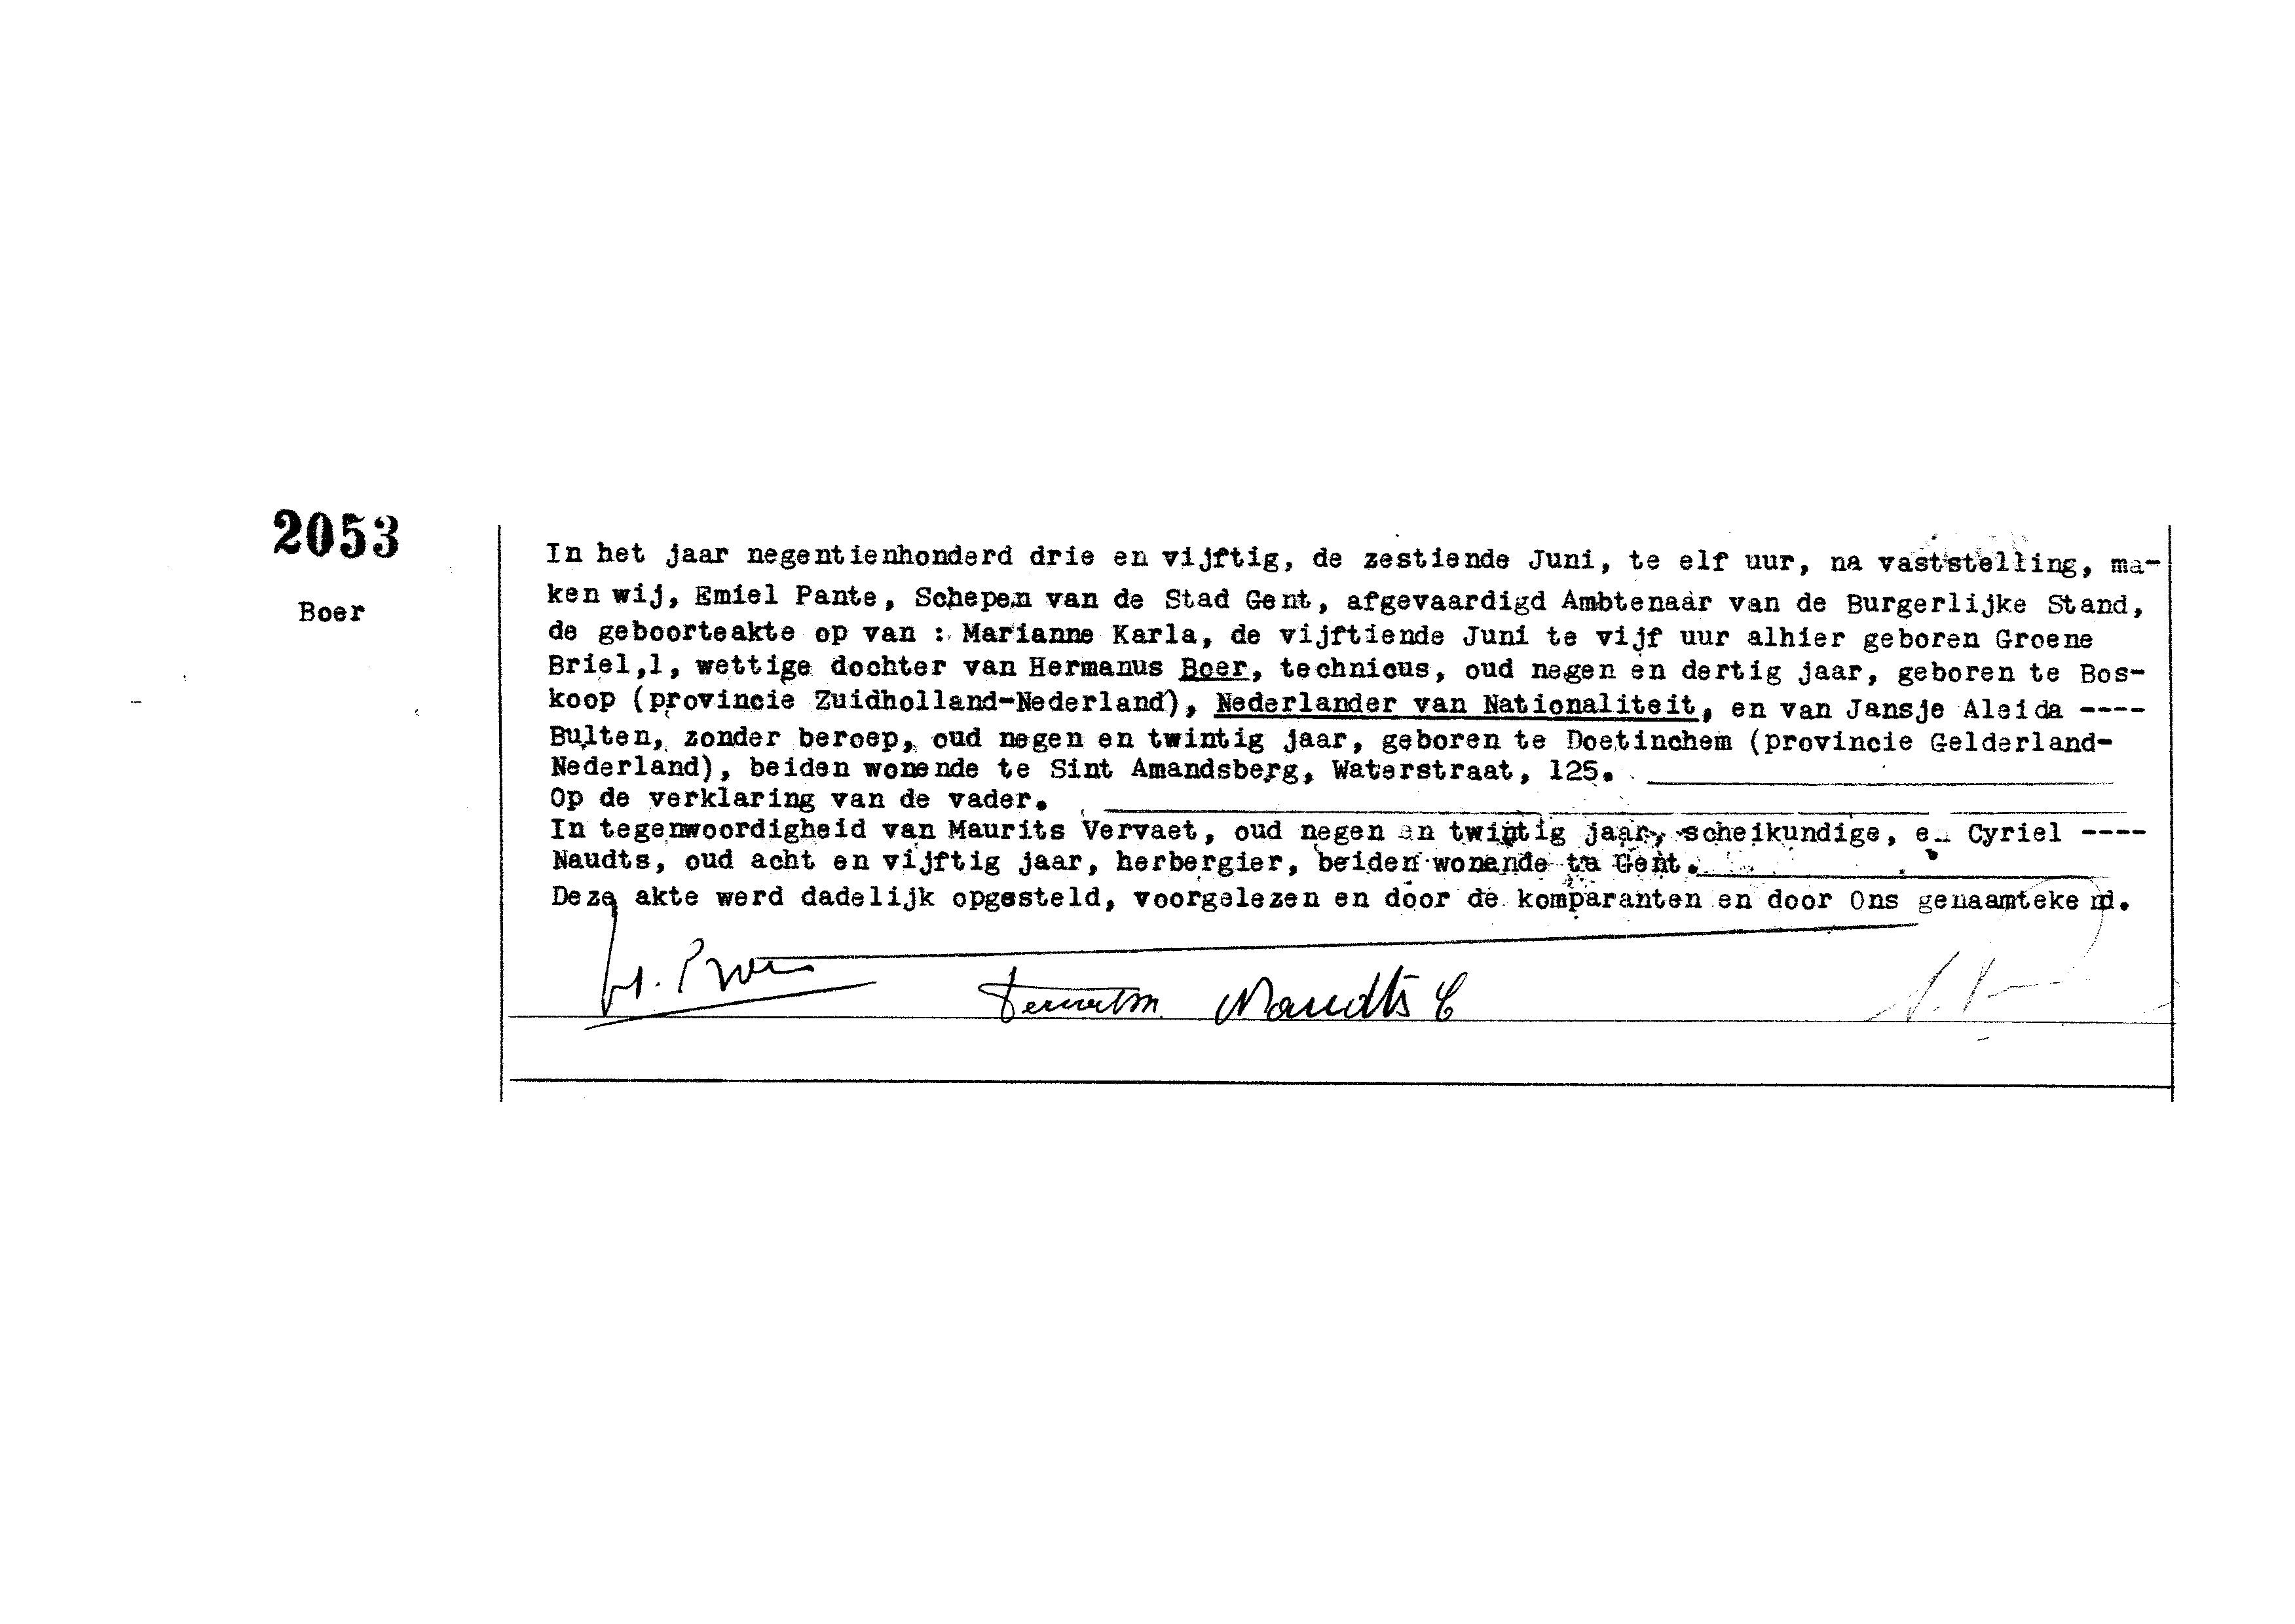 2053
Boer
In het jaar negentienhonderd drie en vijftig, de zestiende Juni, te elf uur, na vaststelling, ma-
ken wij, Emiel Pante, Schepen van de Stad Gent, afgevaardigd Ambtenaar van de Burgerlijke Stand,
de geboorteakte op van : Marianne Karla, de vijftiende Juni te vijf uur alhier geboren Groene
Briel,1, wettige dochter van Hermanus Boer, technicus, oud negen en dertig jaar, geboren te Bos-
koop (provincie Zuidholland-Nederland), Nederlander van Nationaliteit, en van Jansje Aleida ----
Bulten, zonder beroep, oud negen en twintig jaar, geboren te Doetinchem (provincie Gelderland-
Nederland), beiden wonende te Sint Amandsberg, Waterstraat, 125.
Op de verklaring van de vader.
In tegenwoordigheid van Maurits Vervaet, oud negen en twintig jaar, scheikundige, e. Cyriel ----
Naudts, oud acht en vijftig jaar, herbergier, beiden wonende te Gent.
Deze akte werd dadelijk opgesteld, voorgelezen en door de komparanten en door Ons genaamtekend.
Naudts C